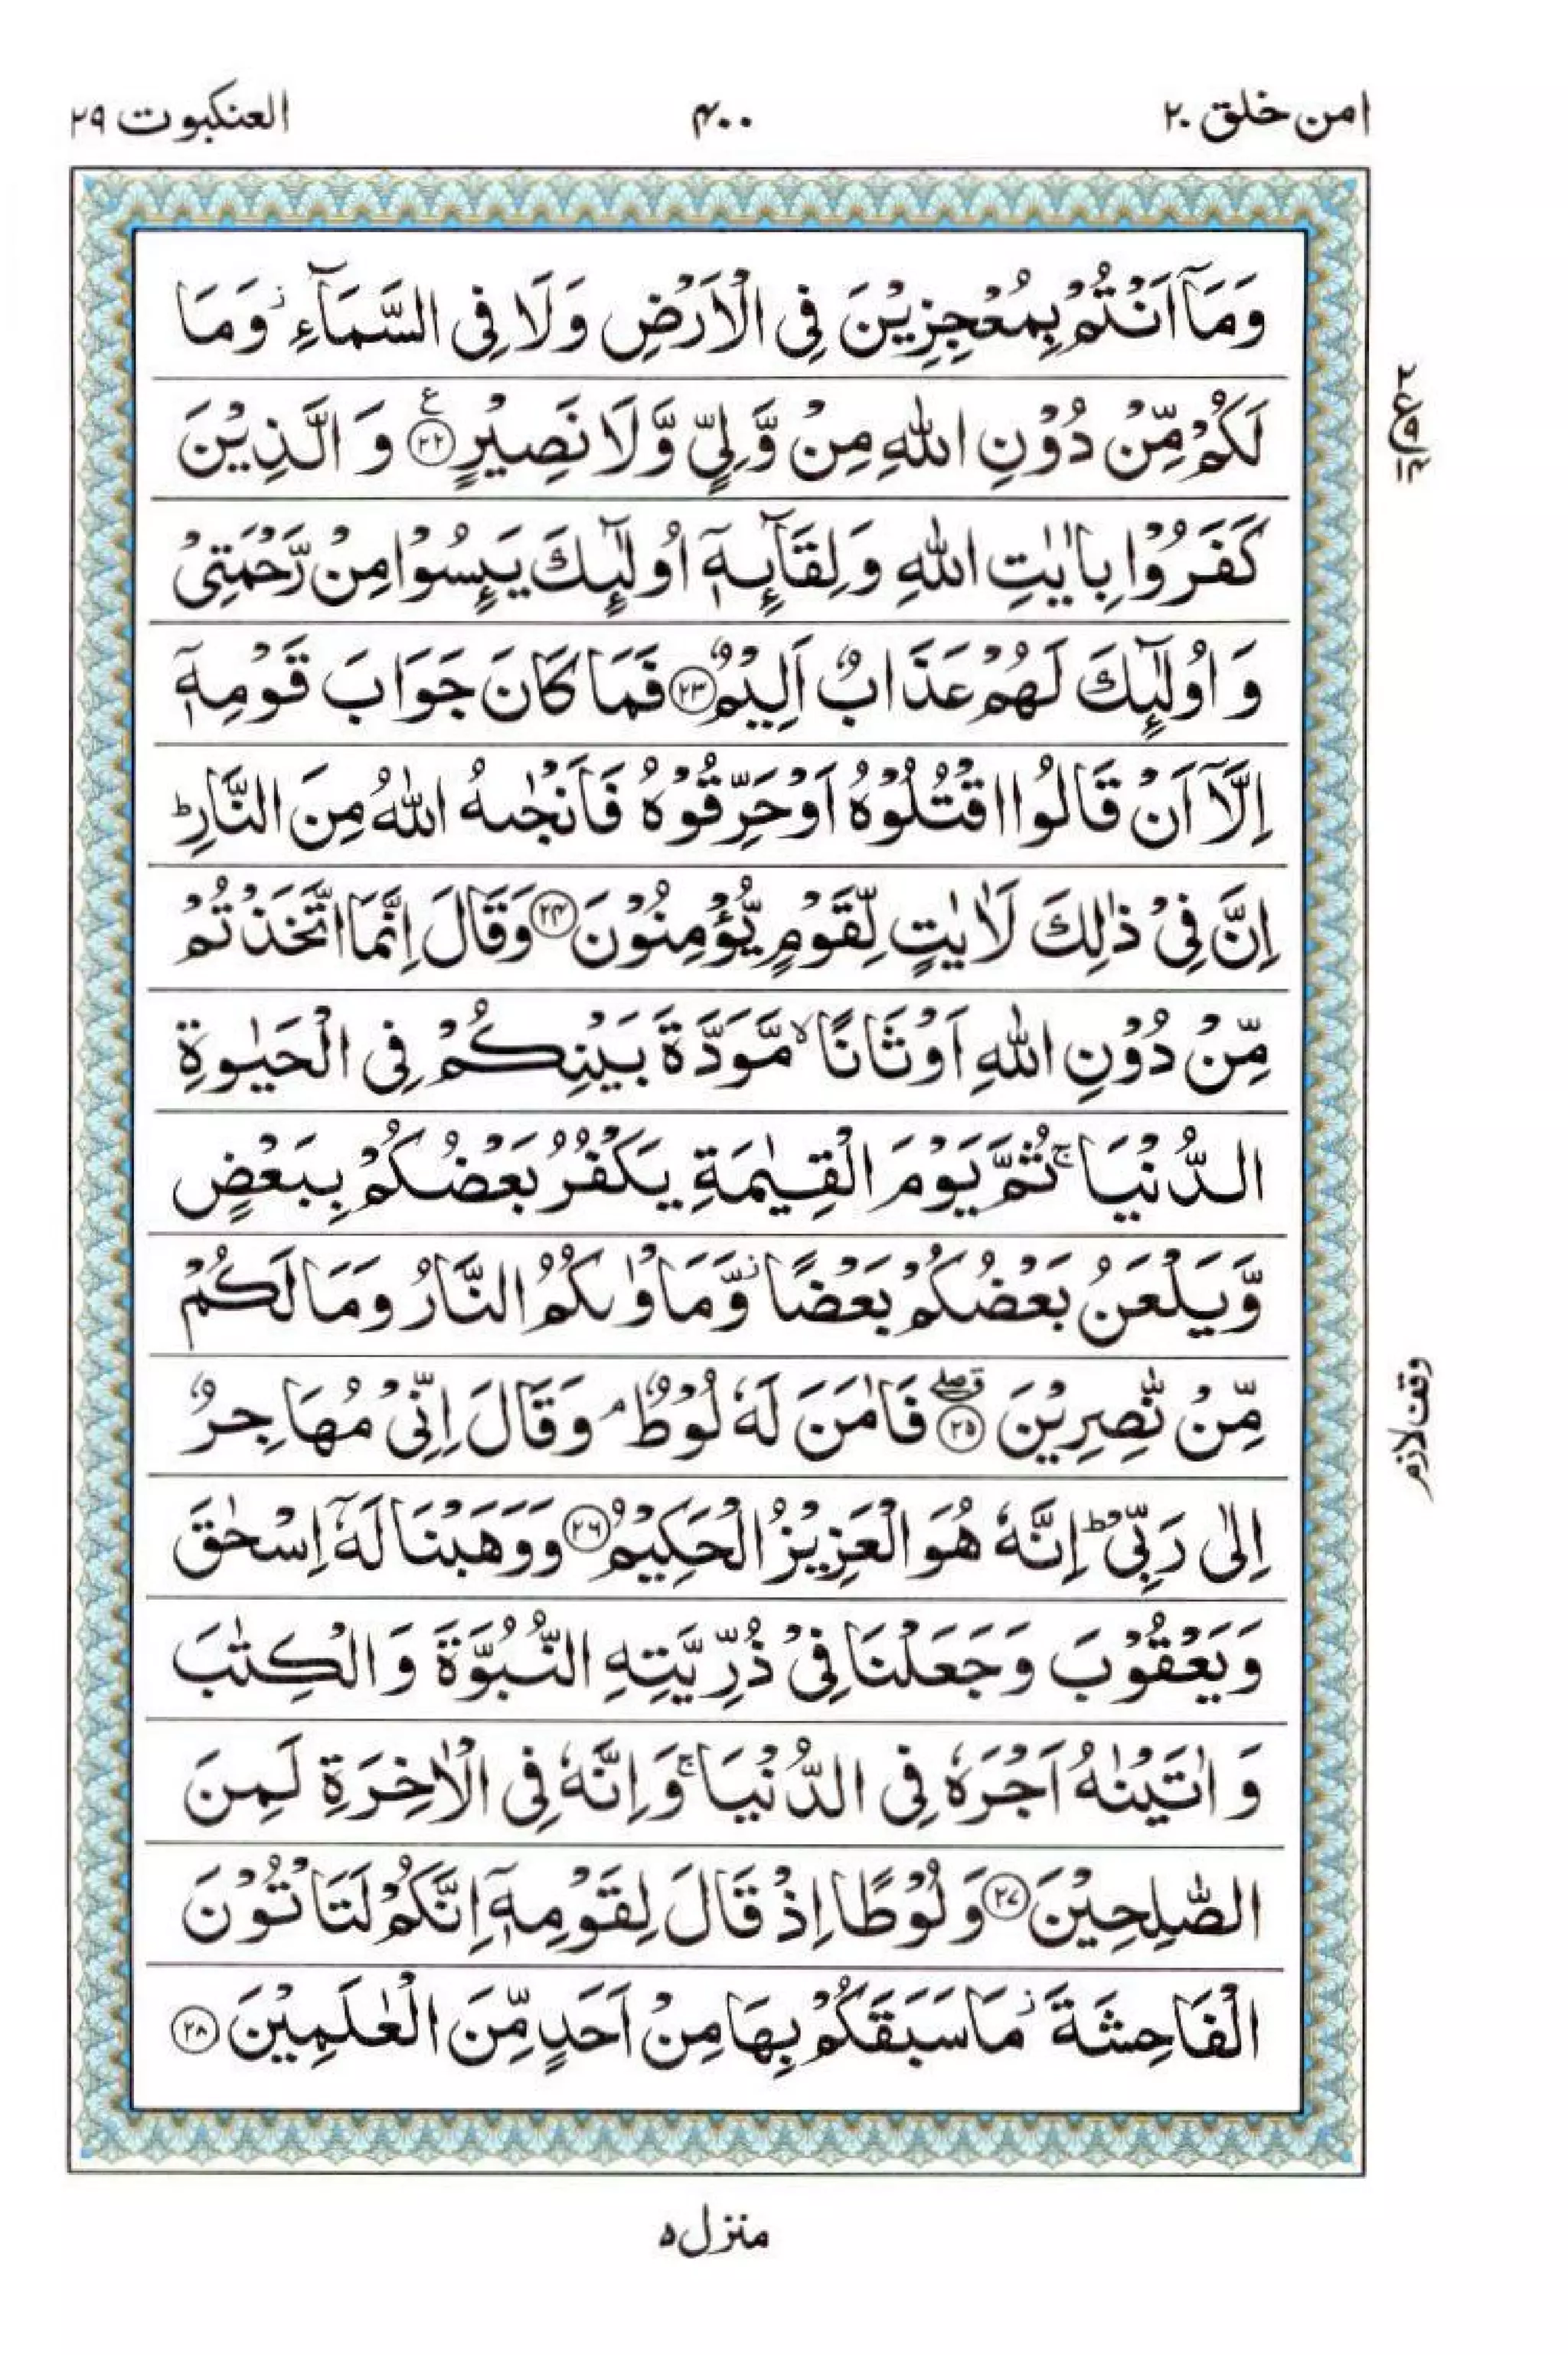 امن خلق ۲۰
۴۰۰
العنكبوت ۲۹
وَمَاۤ اَنْتُمْ بِمُعْجِزِيْنَ فِى الْاَرْضِ وَلَا فِى السَّمَآءِ ز وَمَا
لَكُمْ مِّنْ دُوْنِ اللّٰهِ مِنْ وَّلِىٍّ وَّلَا نَصِيْرٍ ع ۲۲ وَ الَّذِيْنَ
كَفَرُوْا بِاٰيٰتِ اللّٰهِ وَلِقَآئِهٖۤ اُولٰٓئِكَ يَئِسُوْا مِنْ رَّحْمَتِىْ
وَ اُولٰٓئِكَ لَهُمْ عَذَابٌ اَلِيْمٌ ۲۳ فَمَا كَانَ جَوَابَ قَوْمِهٖۤ
اِلَّاۤ اَنْ قَالُوا اقْتُلُوْهُ اَوْ حَرِّقُوْهُ فَاَنْجٰىهُ اللّٰهُ مِنَ النَّارِ ؕ
اِنَّ فِىْ ذٰلِكَ لَاٰيٰتٍ لِّقَوْمٍ يُّؤْمِنُوْنَ ۲۴ وَقَالَ اِنَّمَا اتَّخَذْتُمْ
مِّنْ دُوْنِ اللّٰهِ اَوْثَانًا ۙ مَّوَدَّةَ بَيْنِكُمْ فِى الْحَيٰوةِ
الدُّنْيَا ۚ ثُمَّ يَوْمَ الْقِيٰمَةِ يَكْفُرُ بَعْضُكُمْ بِبَعْضٍ
وَّيَلْعَنُ بَعْضُكُمْ بَعْضًا ز وَّمَاْوٰىكُمُ النَّارُ وَمَا لَكُمْ
مِّنْ نّٰصِرِيْنَ ۲۵ فَاٰمَنَ لَهٗ لُوْطٌ ۘ وَقَالَ اِنِّىْ مُهَاجِرٌ
اِلٰى رَبِّىْ ؕ اِنَّهٗ هُوَ الْعَزِيْزُ الْحَكِيْمُ ۲۶ وَوَهَبْنَا لَهٗۤ اِسْحٰقَ
وَيَعْقُوْبَ وَجَعَلْنَا فِىْ ذُرِّيَّتِهِ النُّبُوَّةَ وَالْكِتٰبَ
وَ اٰتَيْنٰهُ اَجْرَهٗ فِى الدُّنْيَا ۚ وَاِنَّهٗ فِى الْاٰخِرَةِ لَمِنَ
الصّٰلِحِيْنَ ۲۷ وَلُوْطًا اِذْ قَالَ لِقَوْمِهٖۤ اِنَّكُمْ لَتَاْتُوْنَ
الْفَاحِشَةَ ز مَا سَبَقَكُمْ بِهَا مِنْ اَحَدٍ مِّنَ الْعٰلَمِيْنَ ۲۸
وقف لازم
منزل ۵